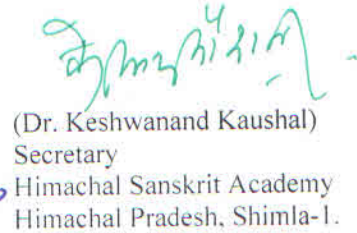 (Dr. Keshwanand Kaushal)
Secretary
Himachal Sanskrit Academy
Himachal Pradesh, Shimla-1.